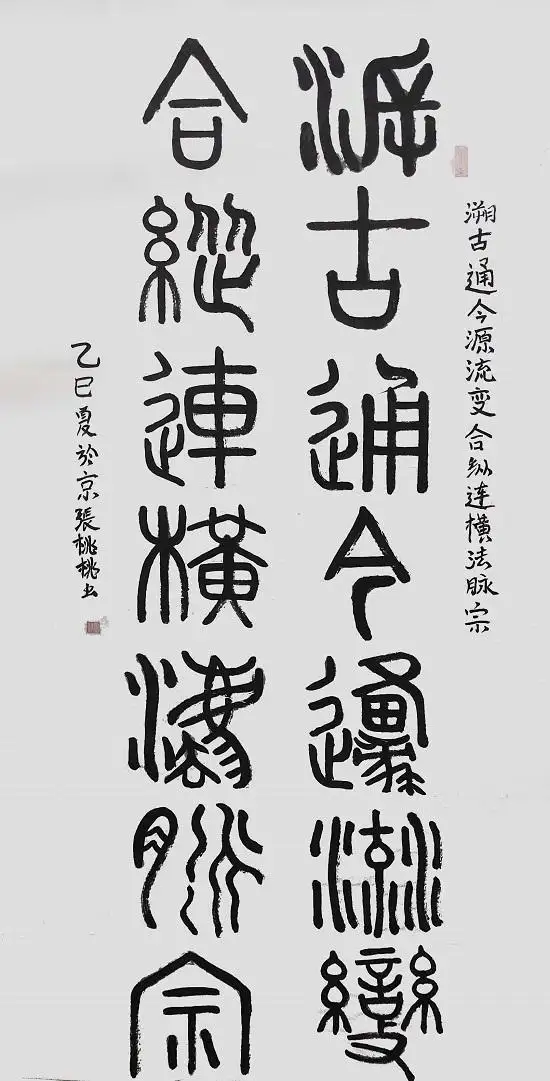 溯古通今源流变合纵连横法脉宗
泝古通今邍流變
合縱連橫灋脈宗
乙巳夏於京張桃桃书